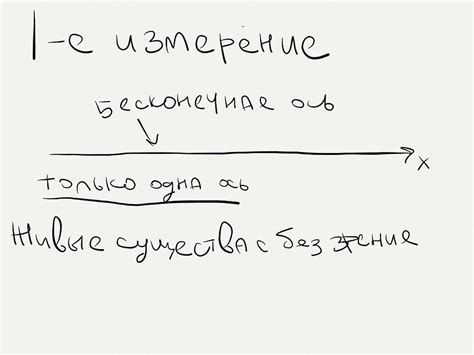 1-е измерение
Бесконечная ось
x
только одна ось
Живые существа с без зрение